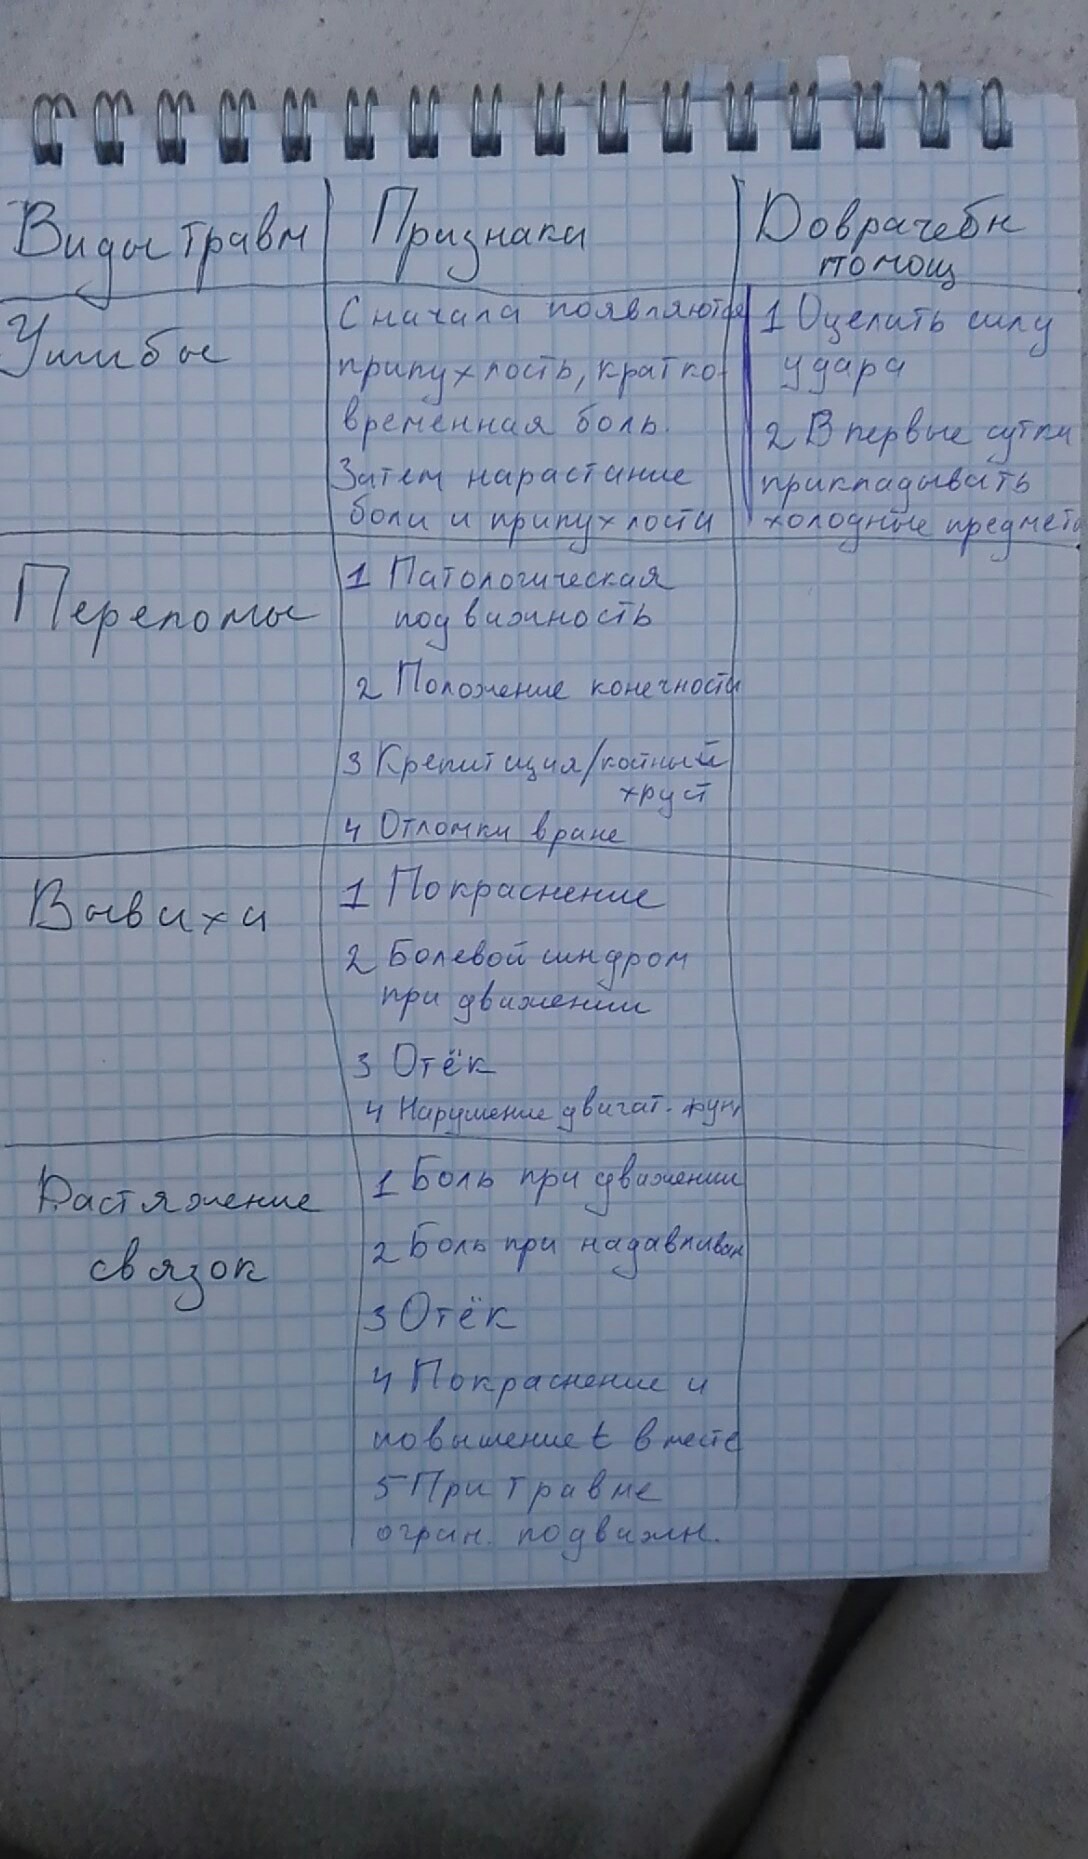 Виды травм
Признаки
Доврачебн
помощ
Ушибы
Сначала появляются
припухлость, кратко-
временная боль.
Затем нарастание
боли и припухлости
1 Оценить силу
удара
2 В первые сутки
прикладывать
холодные предметы
Переломы
1 Патологическая
подвижность
2 Положение конечности
3 Крепитация/костный
хруст
4 Отломки в ране
Вывихи
1 Покраснение
2 Болевой синдром
при движении
3 Отёк
4 Нарушение двигат. функ
Растяжение
связок
1 Боль при движении
2 Боль при надавливан
3 Отёк
4 Покраснение и
повышение t в месте
5 При травме
огран. подвижн.